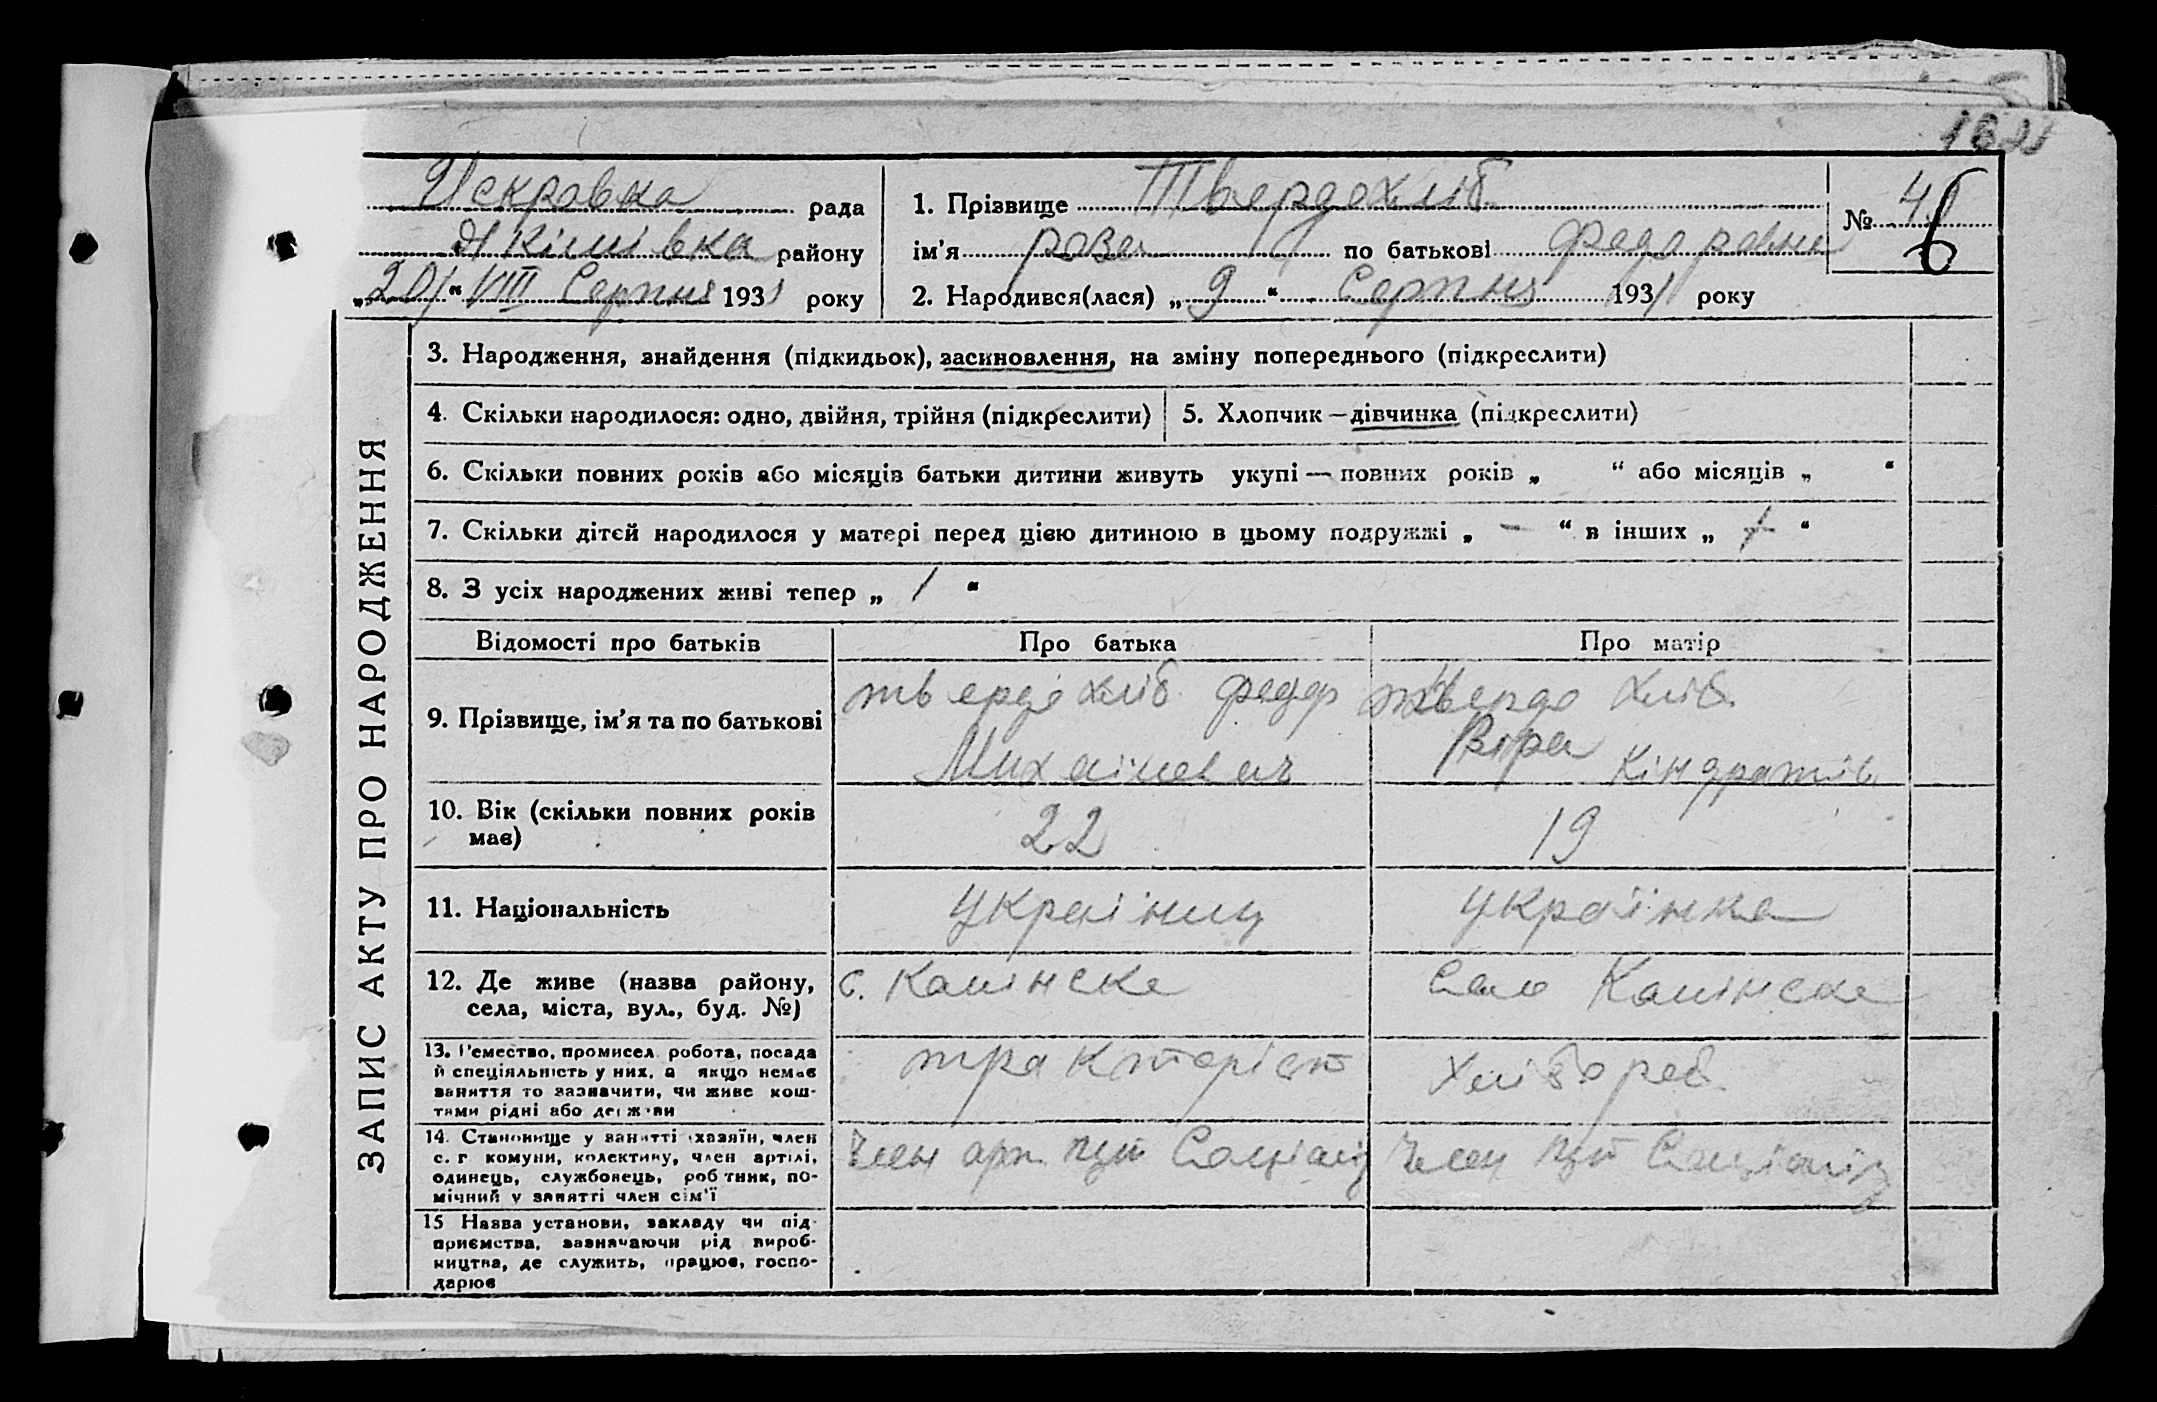 162
Искровка рада
району
"20" VIII Серпня 1931 року
1. Прізвище Твердохліб
ім'я роза по батькові Федаровна
2. Народився(лася) „ 9 “ Серпня 1931 року
№ 4 6
ЗАПИС АКТУ ПРО НАРОДЖЕННЯ
3. Народження, знайдення (підкидьок), засиновлення, на зміну попереднього (підкреслити)
4. Скільки народилося: одно, двійня, трійня (підкреслити)
5. Хлопчик — дівчинка (підкреслити)
6. Скільки повних років або місяців батьки дитини живуть укупі — повних років „ “ або місяців „ “
7. Скільки дітей народилося у матері перед цією дитиною в цьому подружжі „ – “ в інших „ “
8. З усіх народжених живі тепер „ / “
Відомості про батьків Про батька Про матір
9. Прізвище, ім'я та по батькові
твердохліб Федор
Михайлович
твердо хліб
Віра Кіндратів
10. Вік (скільки повних років має) 22 19
11. Національність українец українка
12. Де живе (назва району,
села, міста, вул., буд. №)
с. Камінске
Село Камінске
13. Ремество, промисел, робота, посада
й спеціяльність у них, а якщо немає
заняття то зазначити, чи живе кош-
тами рідні або держави
тракторіст
Хлібороб
14. Становище у занятті (хазяїн, член
с.-г. комуни, колективу, член артілі,
одинець, службовець, робітник, по-
мічний у занятті член сім'ї
Член арт. пут Соціаліз
Член пут Соціаліз
15 Назва установи, закладу чи під-
приємства, зазначаючи рід вироб-
ництва, де служить, працює, госпо-
дарює